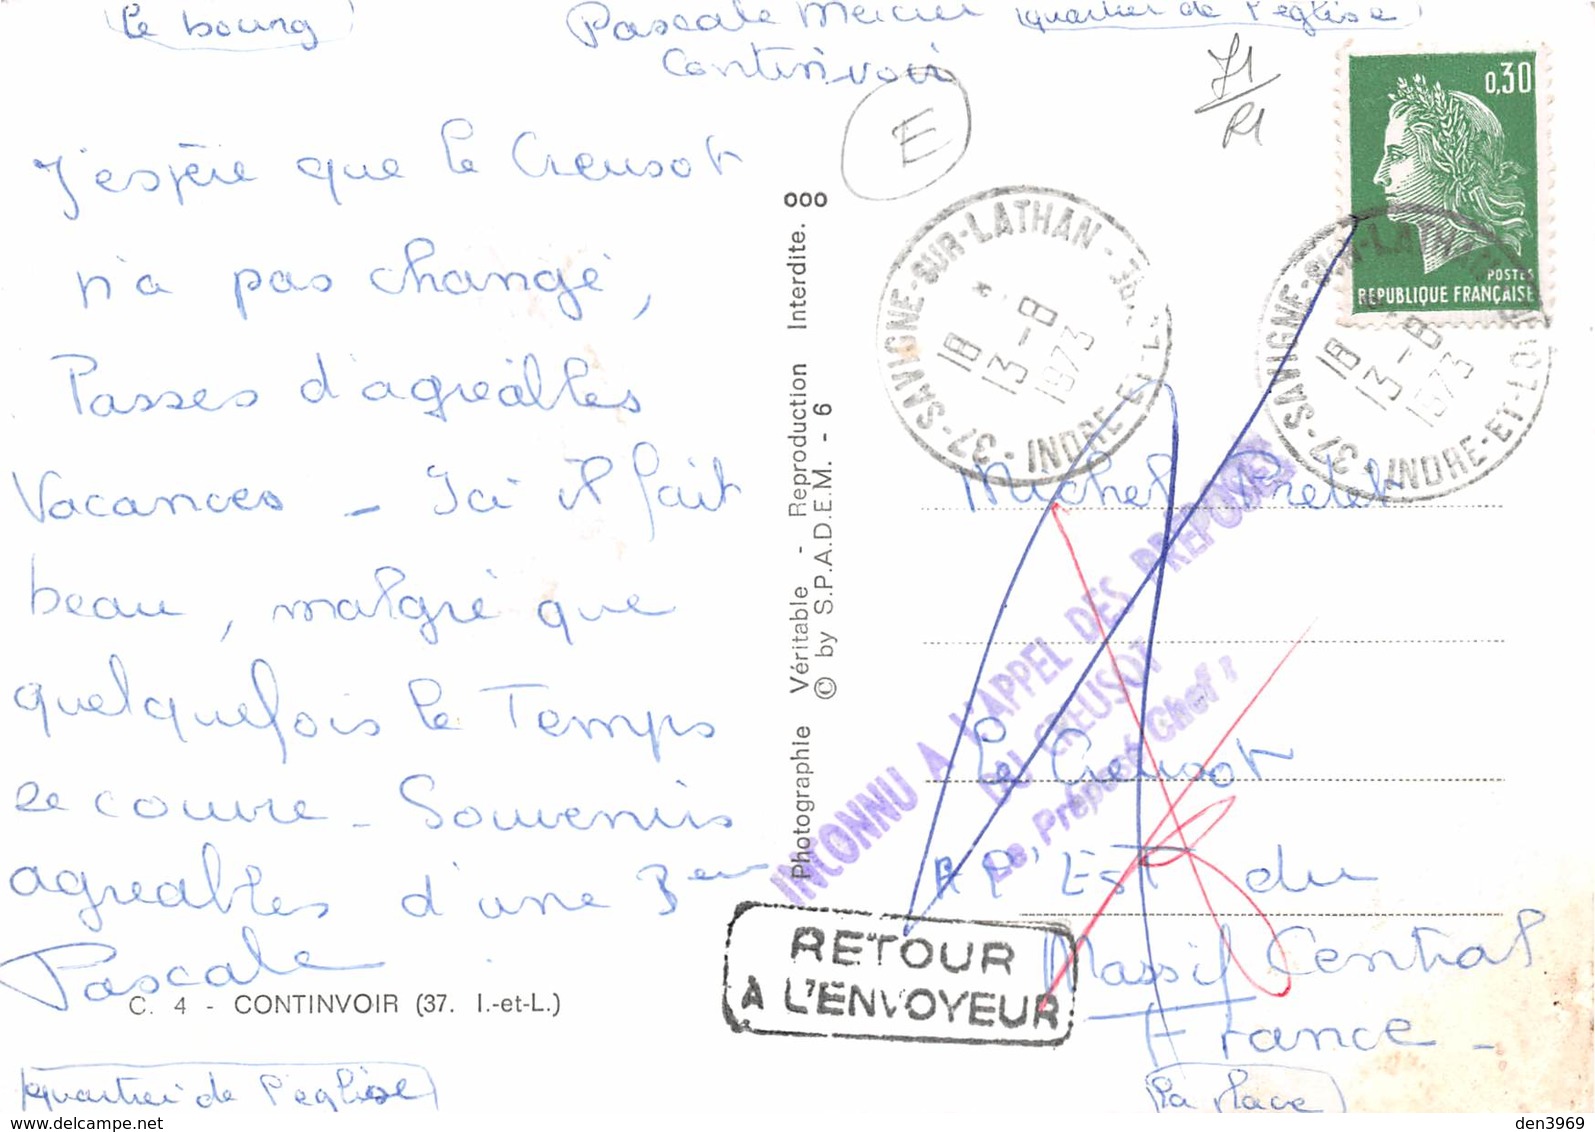 Le bourg
Pascale Mercier quartier de l'eglise
Continvoir
E
0,30
POSTES
REPUBLIQUE FRANÇAISE
J'espère que le Creusot
n'a pas changé,
Passes d'agréables
Vacances - Ici il fait
beau, malgré que
quelquefois le Temps
se couvre - Souvenirs
agreables d'une
Pascale
C. 4 - CONTINVOIR (37. I.-et-L.)
quartier de l'eglise
Photographie Véritable - Reproduction Interdite. 000
© by S.P.A.D.E.M. - 6
37-SAVIGNE-SUR-LATHAN - INDRE-ET-L
18
13-8
1973
37-SAVIGNE-SUR-LATHAN INDRE-ET-LOIRE
18
13-8
1973
INCONNU A L'APPEL DES PREPOSES
DU CREUSOT
Le Préposé Chef:
Michel
Le Creusot
A l'Est du
Massif Central
France -
La place
RETOUR
A L'ENVOYEUR
delcampe.net
den3969